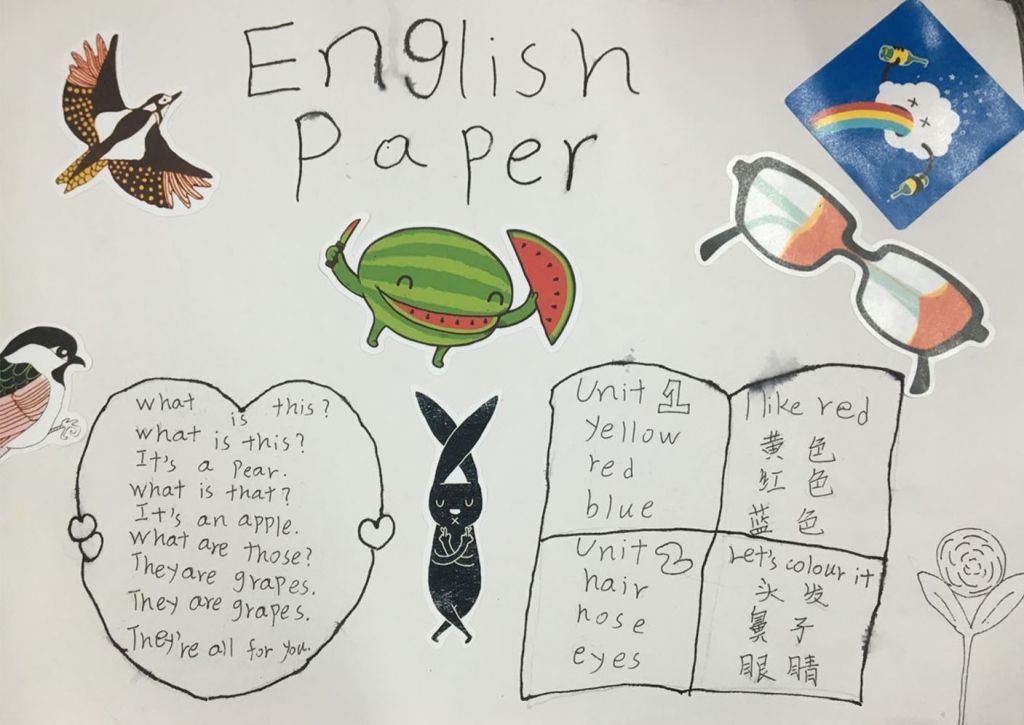 English
Paper
what is this?
what is this?
It's a pear.
what is that?
It's an apple.
what are those?
They are grapes.
They are grapes.
They're all for you.
Unit 1
yellow
red
blue
I like red
黄色
红色
蓝色
Unit 2
hair
nose
eyes
Let's colour it
头发
鼻子
眼睛